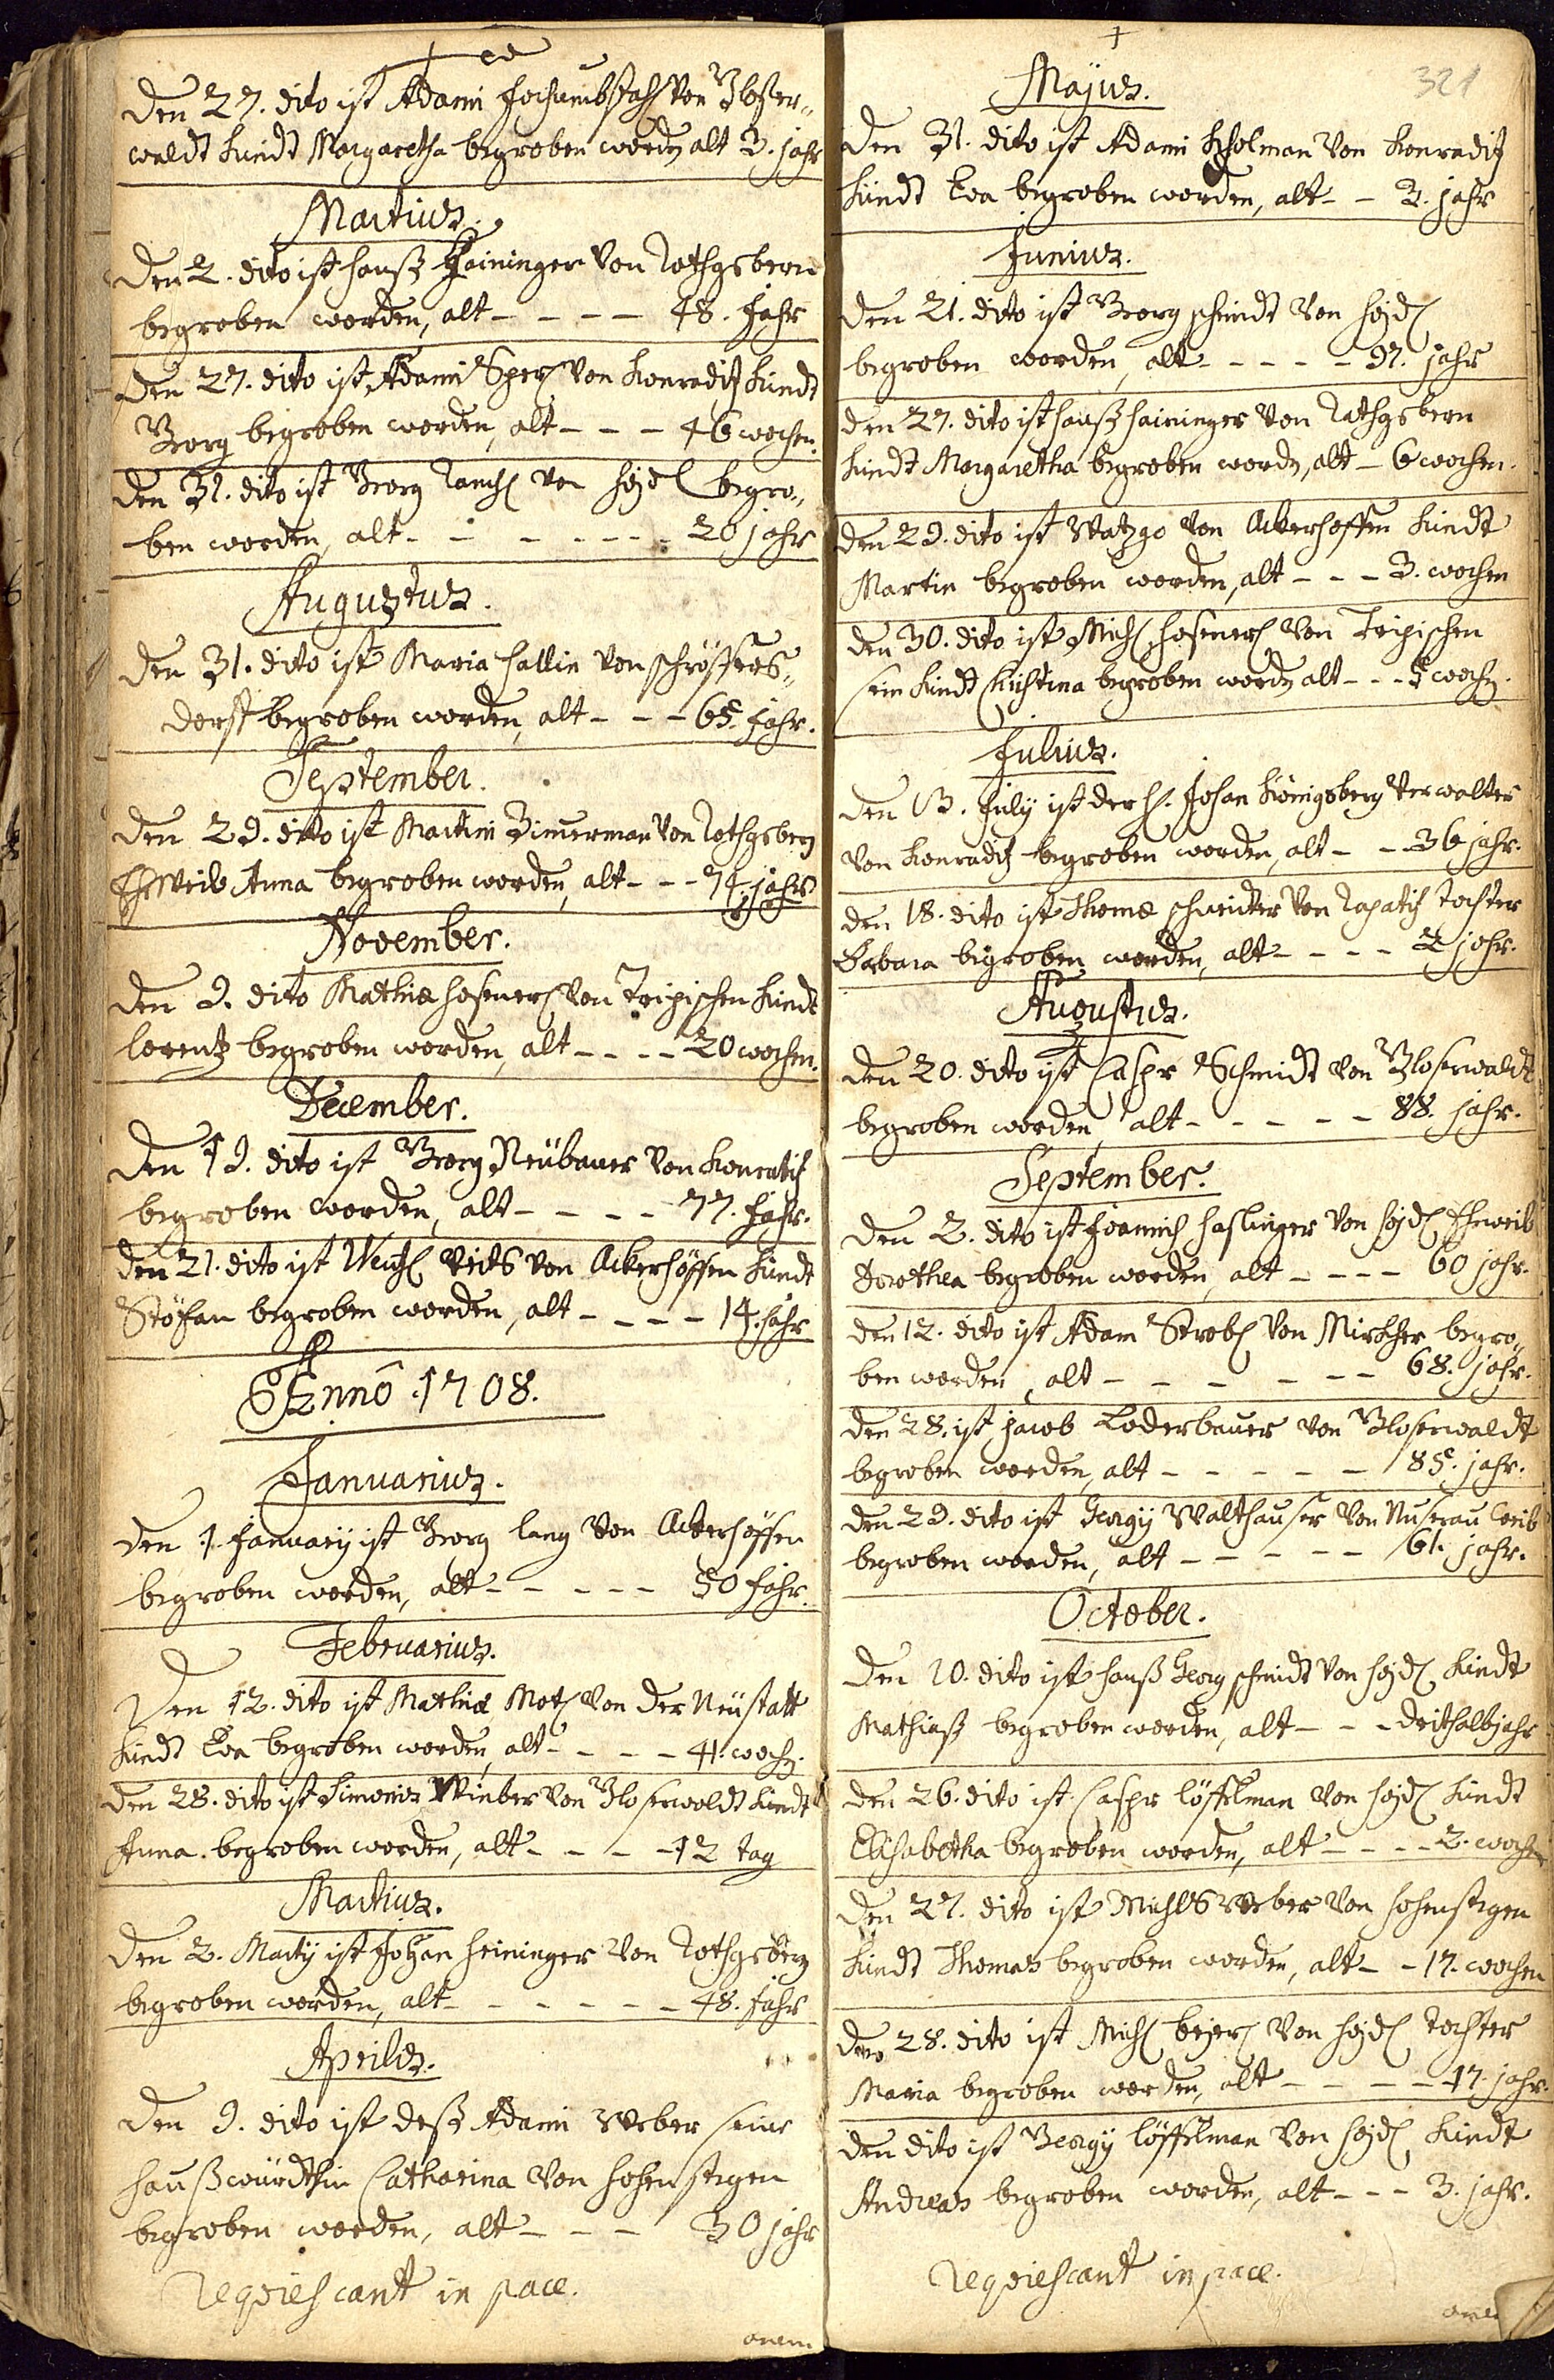 Den 27. dito ist Adami von Bloser„
waldt Kindt Margaretha begroben worden alt 3. jahr
Martius.
Den 2. dito ist Hanß Haininger von Rothgsbern
begroben worden, alt – – – – 48. Jahr
Den 27. dito ist Adami Sperl von Konradiz Kindt
Georg begroben worden, alt – – – 46 wochen.
Den 31. dito ist Georg von Hejdl begro„
ben worden, alt – – – – – – 20 jahr
Augustus.
Den 31. dito ist Maria Hallin von Schröffers„
dorff begroben worden, alt – – – 65. Jahr.
September.
Den 29. dito ist Martini Zimerman von Rothgsberg
EheWeib Anna begroben worden, alt – – – 74. jahr
November.
Den 9. dito Mathiæ Hosnerl von Tripischen Kindt
Lorentz begroben worden, alt – – – – 20 wochen.
December.
Den 19. dito ist Georg Neübauer von Konratiz
begroben worden, alt – – – – 77. Jahr.
Den 21. dito ist Veits von Ackerhöffen Kindt
Stöfan begroben worden, alt – – – – 14. Jahr
Annô 1708.
Januarius.
Den 1. January ist Georg Lang von Ackerhöffen
begroben worden, alt – – – – – 50 Jahr.
Februarius.
Den 12. dito ist Mathiæ Motl von der Neüstatt
Kindt Eva begroben worden, alt – – – – 41. woch.
Den 28. dito ist Simonis Winber von Bloserwoldt Kindt
Anna begroben worden, alt – – – – 12 tag
Martius.
Den 2. Marty ist Johan Heininger von Rothgsberg
begroben worden, alt – – – – – – 48. Jahr
Aprilis.
Den 9. dito ist deß Adami Weber seine
Haußwürdthin Catharina von Hohenstegen
begroben worden, alt – – – 30 jahr
Reqviescant in pace.
321
Majus.
Den 31. dito ist Adami Holman von Konradiz
Kindt Eva begroben worden, alt – – 3. jahr
Junius.
Den 21. dito ist Georg Schmidt von Hejdl
begroben worden, alt – – – – – 97. jahr
Den 27. dito ist Hanß Haininger von Rathgsbern
Kindt Margaretha begroben wordn, alt – 6 wochen.
Den 29. dito ist von Ackerhoffen Kindt
Martin begroben worden, alt – – – 3. wochen
Den 30. dito ist Michl Hosnerl von Tripischen
sein Kindt Christina begroben wordn alt – – – 5 wochn.
Julius.
Den 13. July ist der H. Johan Königsberg Verwalter
von Konradiz begroben worden, alt – – 36 jahr.
Den 18. dito ist Thomæ Schneider von Rapatiz Tochter
Barbara begroben worden, alt – – – – 2 jahr.
Augustus.
Den 20. dito ist Caspr Schmidt von Bloserwaldt
begroben worden, alt – – – – – 88. jahr.
September.
Den 2. dito ist Haslinger von Hejdl Eheweib
Dorothea begroben worden, alt – – – – 60 jahr.
Den 12. dito ist Adam Strobl von Mirkher begro„
ben worden, alt – – – – – – 68. jahr.
Den 28. ist jacob Loderbauer von Bloserwaldt
begroben worden, alt – – – – – 85. jahr.
Den 29. dito ist Georgij Walthauser von Nuserau weib
begroben worden, alt – – – – – 61. jahr.
October.
Den 10. dito ist Hanß Georg Schmidt von Hejdl Kindt
Mathiaß begroben worden, alt – – – drithalbjahr
Den 26. dito ist Caspr Löffelman von Hejdl Kindt
Elisabetha begroben worden, alt – – – – 2. wochen
Den 27. dito ist Michls Weber von Hohenstegen
Kindt Thomas begroben worden, alt – – 17. wochen
Den 28. dito ist Michl bejerl von Hejdl Tochter
Maria begroben worden, alt – – – – 17. jahr.
Den dito ist Georgij Löffelman von Hejdl Kindt
Andreas begroben worden, alt – – – 3. jahr.
Reqviescant in pace.